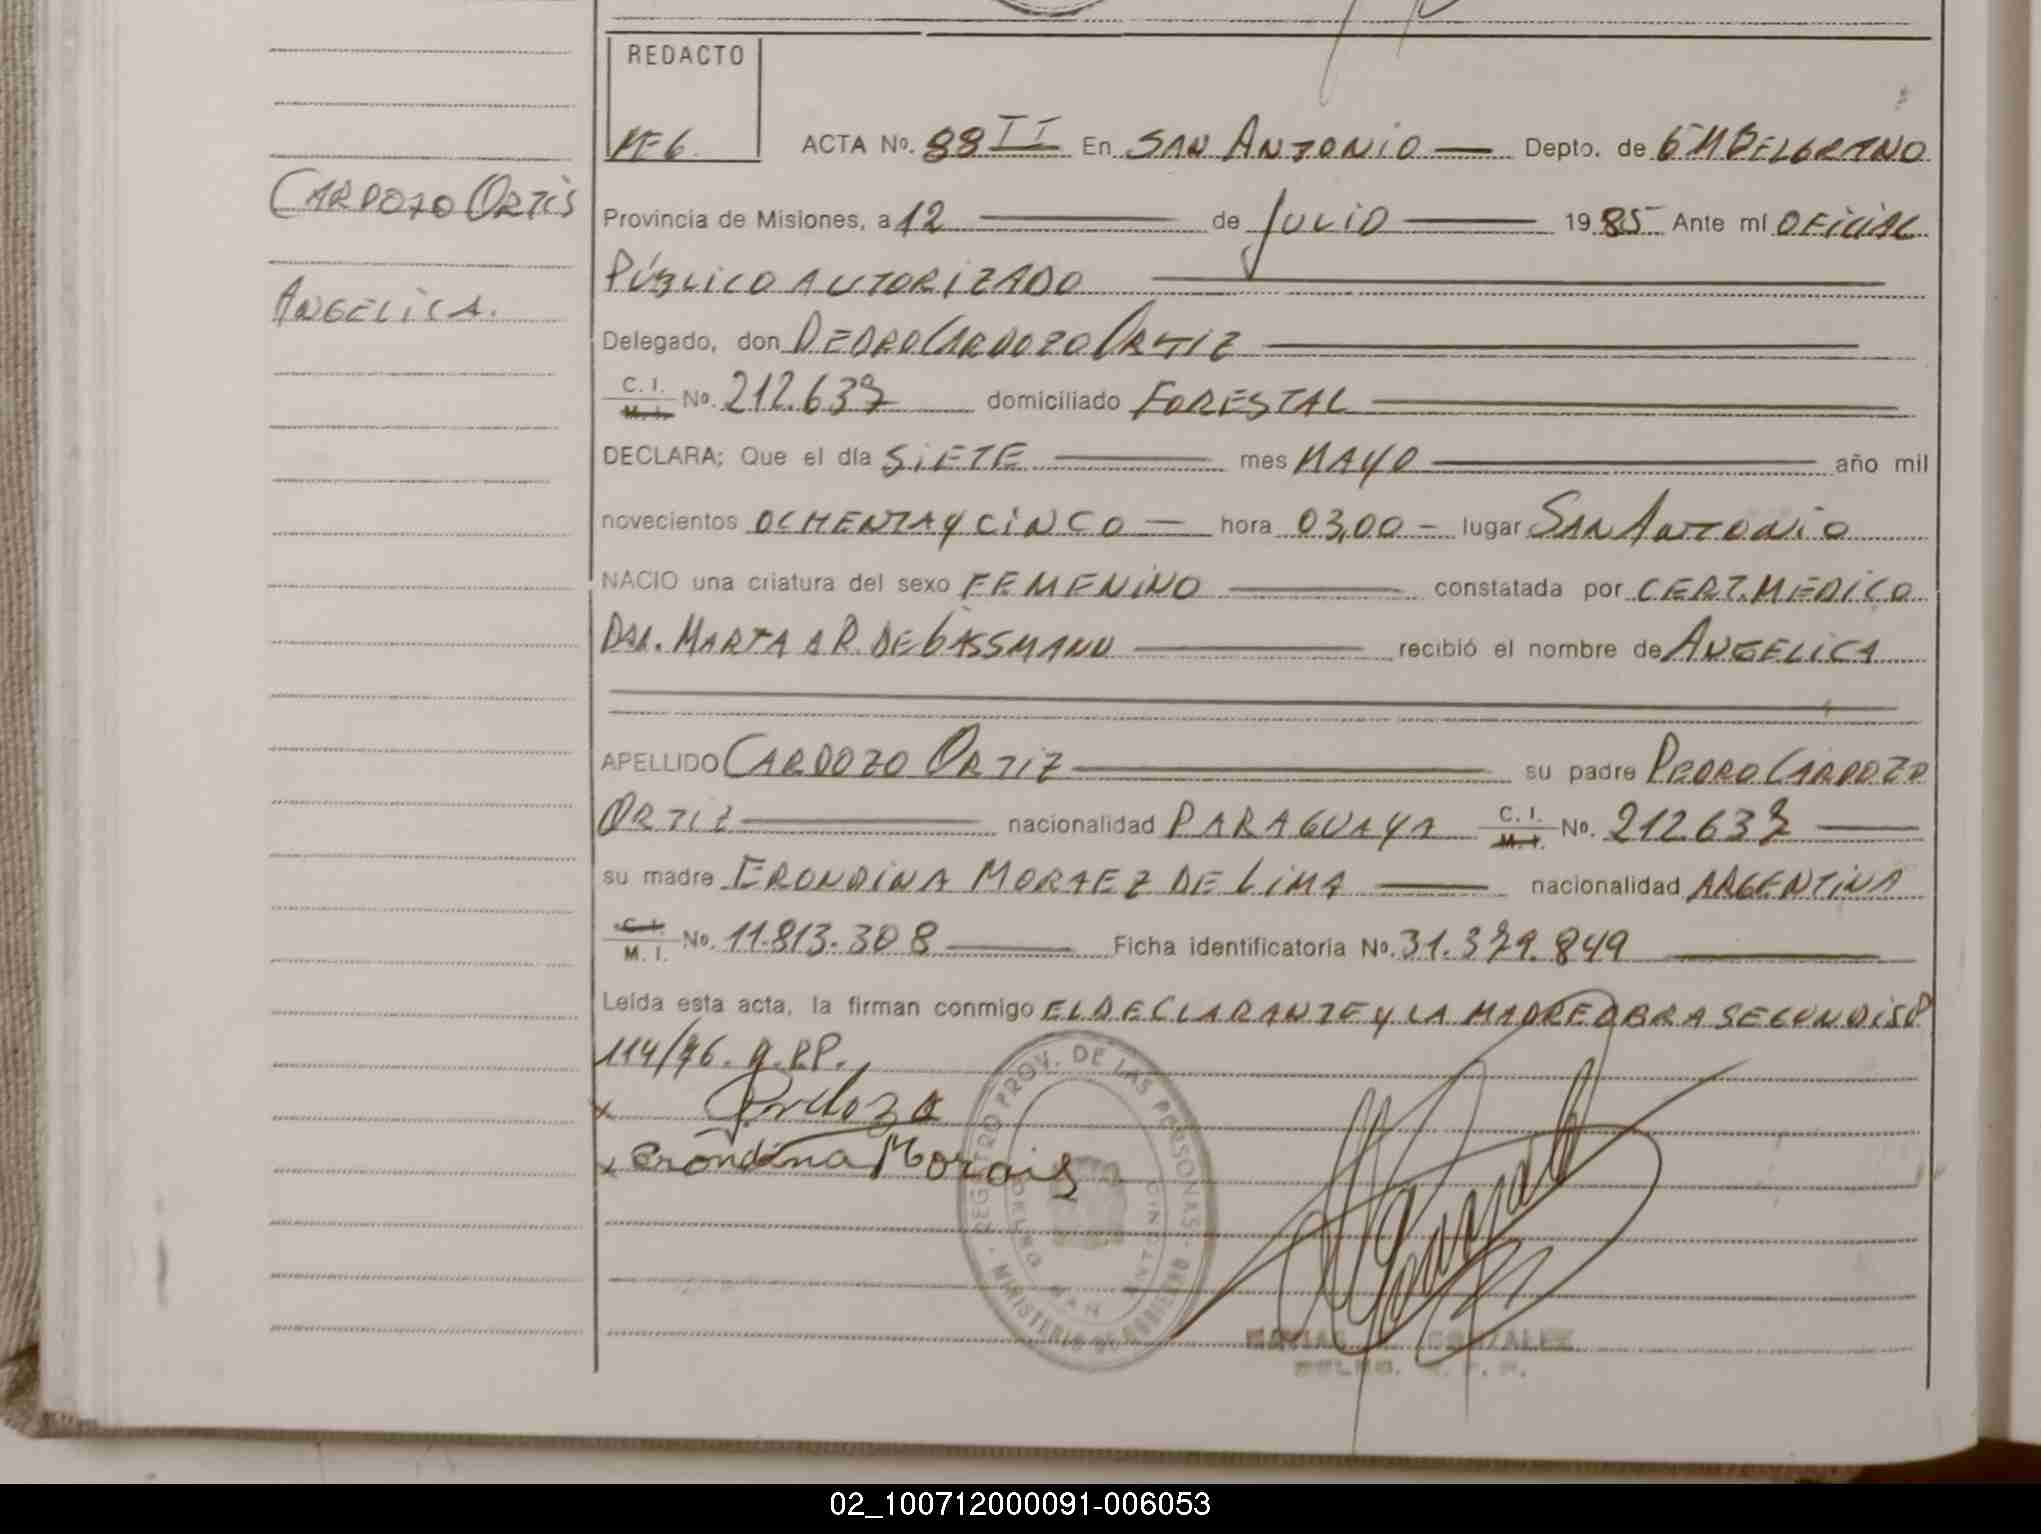 REDACTO
ME6.
ACTA No. 88 II En SAN ANTONIO Depto. de GM BELGRANO
CARDOZO ORTIS
Provincia de Misiones, a 12 de JULIO 1985 Ante mí OFICIAL
PÚBLICO AUTORIZADO
ANGELICA.
Delegado, don PEDRO CARDOZO ORTIZ
C. I. M. I. No. 212.637 domiciliado FORESTAL
DECLARA; Que el día SIETE mes MAYO año mil
novecientos OCHENTA Y CINCO hora 03,00 lugar SAN ANTONIO
NACIO una criatura del sexo FEMENINO constatada por CERT. MEDICO
DRA. MARTA A R. DE GASSMANN recibió el nombre de ANGELICA
APELLIDO CARDOZO ORTIZ su padre PEDRO CARDOZO
ORTIZ nacionalidad PARAGUAYA C. I. M. I. No. 212.637
su madre ERONDINA MORAEZ DE LIMA nacionalidad ARGENTINA
C. I. M. I. No. 11.813.308 Ficha identificatoria No. 31.379.849
Leída esta acta, la firman conmigo EL DECLARANTE Y LA MADRE OBRA SEGUN DISP
114/76. R.P.P.
x Cardozo
x Erondina Morais
REGISTRO PROV. DE LAS PERSONAS
MINISTERIO DE GOBIERNO
GONZALEZ
DELEG. R. P. P.
02_100712000091-006053